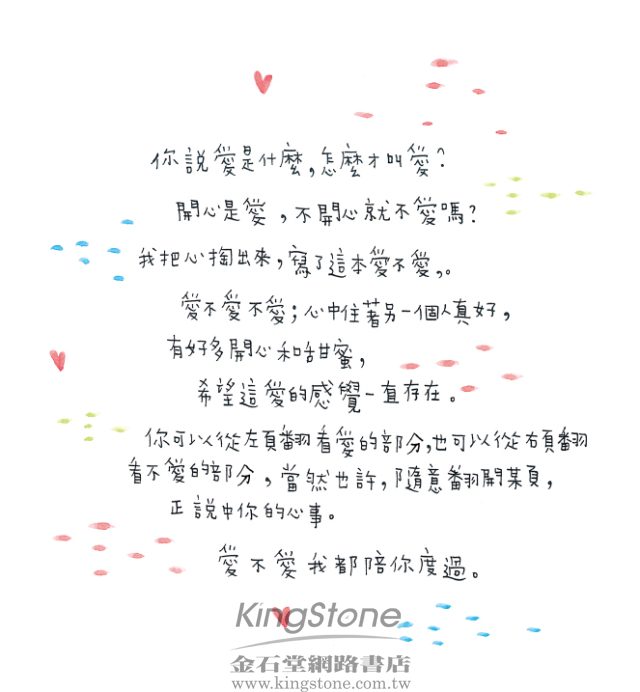 你說愛是什麼,怎麼才叫愛?
開心是愛,不開心就不愛嗎?
我把心掏出來,寫了這本愛不愛,。
愛不愛不愛;心中住著另一個人真好,
有好多開心和甜蜜,
希望這愛的感覺一直存在。
你可以從左頁翻看愛的部分,也可以從右頁翻
看不愛的部分,當然也許,隨意翻開某頁,
正說中你的心事。
愛不愛我都陪你度過。
KingStone
金石堂網路書店
www.kingstone.com.tw